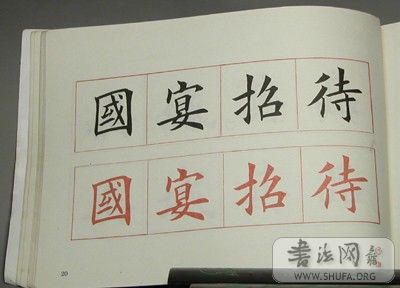 國宴招待
國宴招待
20
书法网
WWW.SHUFA.ORG